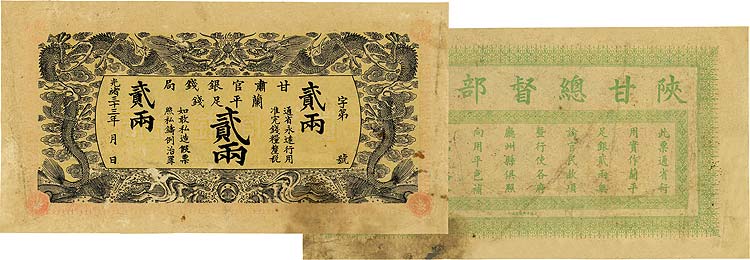 甘肅官銀錢局
蘭平足錢
字第 號
貳兩
通省永遠行用
准完錢糧釐稅
貳兩
如敢私造假票
照私鑄例治罪
貳兩
光緒三十三年 月 日
陝甘總督部
此票通省行
用實作蘭平
足銀貳兩無
論官民款項
行使各府
廳州縣俱照
向用平色補